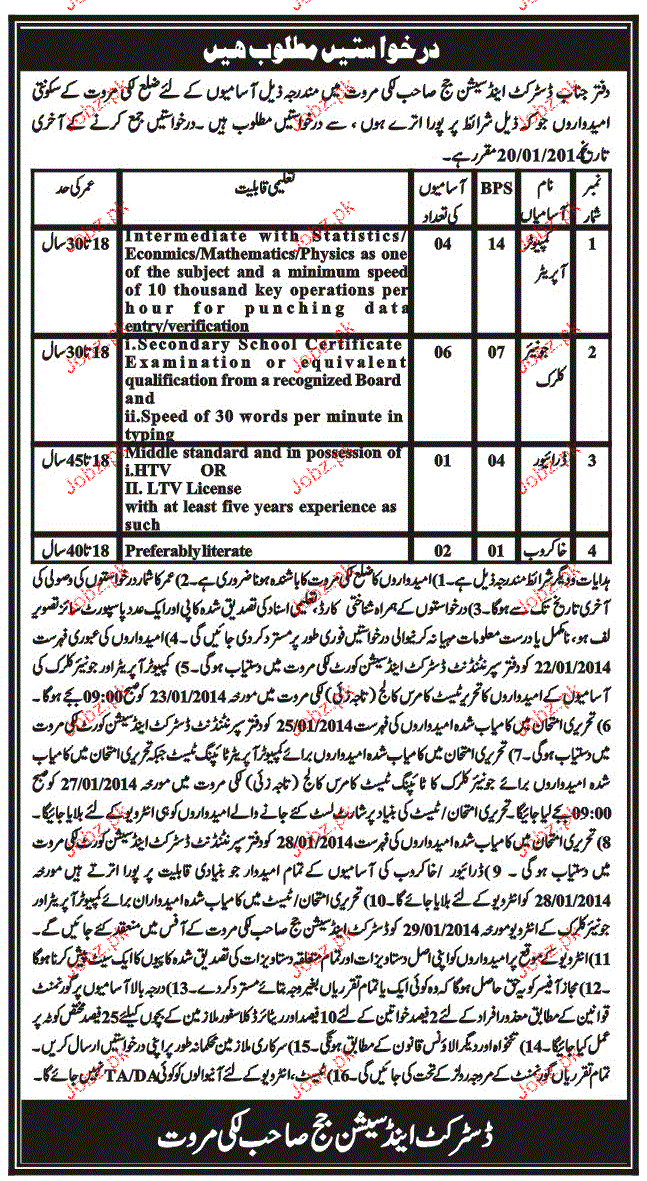 درخواستیں مطلوب ھیں
دفتر جناب ڈسٹرکٹ اینڈ سیشن جج صاحب لکی مروت میں مندرجہ ذیل آسامیوں کے لئے ضلع لکی مروت کے سکونتی
امیدواروں جو کہ ذیل شرائط پر پورا اترے ہوں ، سے درخواستیں مطلوب ہیں ۔ درخواستیں جمع کرنے کے آخری
تاریخ 20/01/2014 مقرر ہے۔
نمبر شمار نام آسامیاں BPS آسامیوں کی تعداد تعلیمی قابلیت عمر کی حد
1 کمپیوٹر آپریٹر 14 04 18 تا 30 سال
Intermediate with Statistics/
Econmics/Mathematics/Physics as one
of the subject and a minimum speed
of 10 thousand key operations per
hour for punching data
entry/verification
2 جونیئر کلرک 07 06 18 تا 30 سال
i.Secondary School Certificate
Examination or equivalent
qualification from a recognized Board
and
ii.Speed of 30 words per minute in
typing
3 ڈرائیور 04 01 18 تا 45 سال
Middle standard and in possession of
i.HTV OR
II. LTV License
with at least five years experience as
such
4 خاکروب 01 02 Preferably literate 18 تا 40 سال
ہدایات و دیگر شرائط مندرجہ ذیل ہے۔ 1) امیدواروں کا ضلع لکی مروت کا باشندہ ہونا ضروری ہے۔ 2) عمر کا شمار درخواستوں کی وصولی کی
آخری تاریخ تک سے ہوگا۔ 3) درخواستوں کے ہمراہ شناختی کارڈ، تعلیمی اسناد کی تصدیق شدہ کاپی اور ایک عدد پاسپورٹ سائز تصویر
لف ہو، نامکمل یا درست معلومات مہیا نہ کرنیوالی درخواستیں فوری طور پر مسترد کر دی جائیں گی ۔ 4) امیدواروں کی عبوری فہرست
22/01/2014 کو دفتر سپرنٹنڈنٹ ڈسٹرکٹ اینڈ سیشن کورٹ لکی مروت میں دستیاب ہوگی۔ 5) کمپیوٹر آپریٹر اور جونیئر کلرک کی
آسامیوں کے امیدواروں کا تحریر ٹیسٹ کامرس کالج (تاجہ زئی) لکی مروت میں مورخہ 23/01/2014 کو صبح 09:00 بجے ہوگا۔
6) تحریری امتحان میں کامیاب شدہ امیدواروں کی فہرست 25/01/2014 کو دفتر سپرنٹنڈنٹ ڈسٹرکٹ اینڈ سیشن کورٹ لکی مروت
میں دستیاب ہوگی۔ 7) تحریری امتحان میں کامیاب شدہ امیدواروں برائے کمپیوٹر آپریٹر ٹائپنگ ٹیسٹ جبکہ تحریری امتحان میں کامیاب
شدہ امیدواروں برائے جونیئر کلرک کا ٹائپنگ ٹیسٹ کامرس کالج (تاجہ زئی) لکی مروت میں مورخہ 27/01/2014 کو صبح
09:00 بجے لیا جائیگا۔ تحریری امتحان/ ٹیسٹ کی بنیاد پر شارٹ لسٹ کئے جانے والے امیدواروں کو ہی انٹرویو کے لئے بلایا جائیگا۔
8) تحریری امتحان میں کامیاب شدہ امیدواروں کی فہرست 28/01/2014 کو دفتر سپرنٹنڈنٹ ڈسٹرکٹ اینڈ سیشن کورٹ لکی مروت
میں دستیاب ہو گی ۔ 9) ڈرائیور /خاکروب کی آسامیوں کے تمام امیدوار جو بنیادی قابلیت پر پورا اترتے ہیں مورخہ
28/01/2014 کو انٹرویو کے لئے بلایا جائے گا۔ 10) تحریری امتحان/ ٹیسٹ میں کامیاب شدہ امیدواران برائے کمپیوٹر آپریٹر اور
جونیئر کلرک کے انٹرویو مورخہ 29/01/2014 کو ڈسٹرکٹ اینڈ سیشن جج صاحب لکی مروت کے آفس میں منعقد کئے جائیں گے۔
11) انٹرویو کے موقع پر امیدواروں کو اپنی اصل دستاویزات اور تمام متعلقہ دستاویزات کی تصدیق شدہ کاپیوں کا ایک سیٹ پیش کرنا ہوگا
۔ 12) مجاز آفیسر کو یہ حق حاصل ہوگا کہ وہ کوئی ایک یا تمام تقرریاں بغیر وجہ بتائے مسترد کر دے۔ 13) درجہ بالا آسامیوں پر گورنمنٹ
قوانین کے مطابق معذور افراد کے لئے 2 فیصد خواتین کے لئے 10 فیصد اور ریٹائرڈ کلاسفور ملازمین کے بچوں کیلئے 25 فیصد مختص کوٹہ پر
عمل کیا جائیگا۔ 14) تنخواہ اور دیگر الاؤنس قانون کے مطابق ہونگی۔ 15) سرکاری ملازمین محکمانہ طور پر اپنی درخواستیں ارسال کریں۔
تمام تقرریاں گورنمنٹ کے مروجہ رولز کے تحت کی جائیں گی۔ 16) ٹیسٹ، انٹرویو کے لئے آنیوالوں کو کوئی TA/DA نہیں جائے گا۔
ڈسٹرکٹ اینڈ سیشن جج صاحب لکی مروت
Jobz.pk